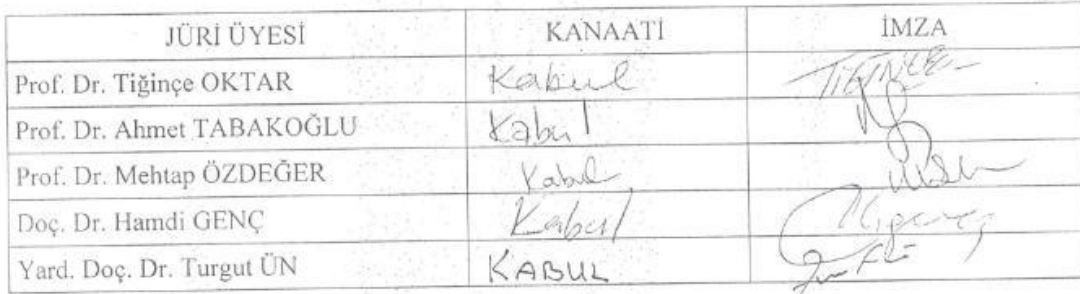 JÜRİ ÜYESİ KANAATİ İMZA
Prof. Dr. Tiğinçe OKTAR Kabul TİĞİNÇE
Prof. Dr. Ahmet TABAKOĞLU Kabul
Prof. Dr. Mehtap ÖZDEĞER Kabul
Doç. Dr. Hamdi GENÇ Kabul
Yard. Doç. Dr. Turgut ÜN KABUL